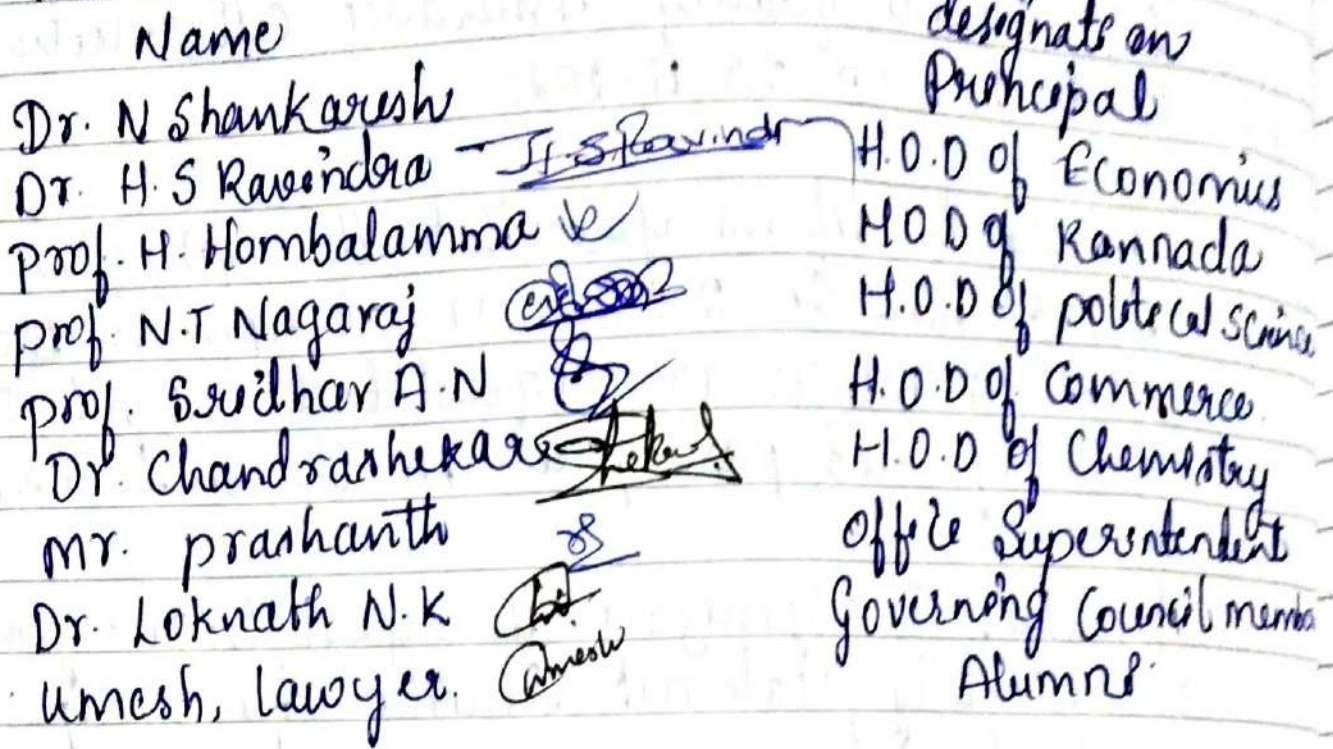 Name designation
Dr. N Shankaresh Principal
Dr. H.S Ravindra H.S Ravindr H.O.D of Economics
Prof. H. Hombalamma H O D of Kannada
Prof. N.T Nagaraj H.O.D of political Science
Prof. Sridhar A.N H.O.D of Commerce
Dr. Chandrashekar H.O.D of Chemistry
Mr. prashanth office Superintendent
Dr. Loknath N.K Governing Council memb
Umesh, lawyer. Umesh Alumni